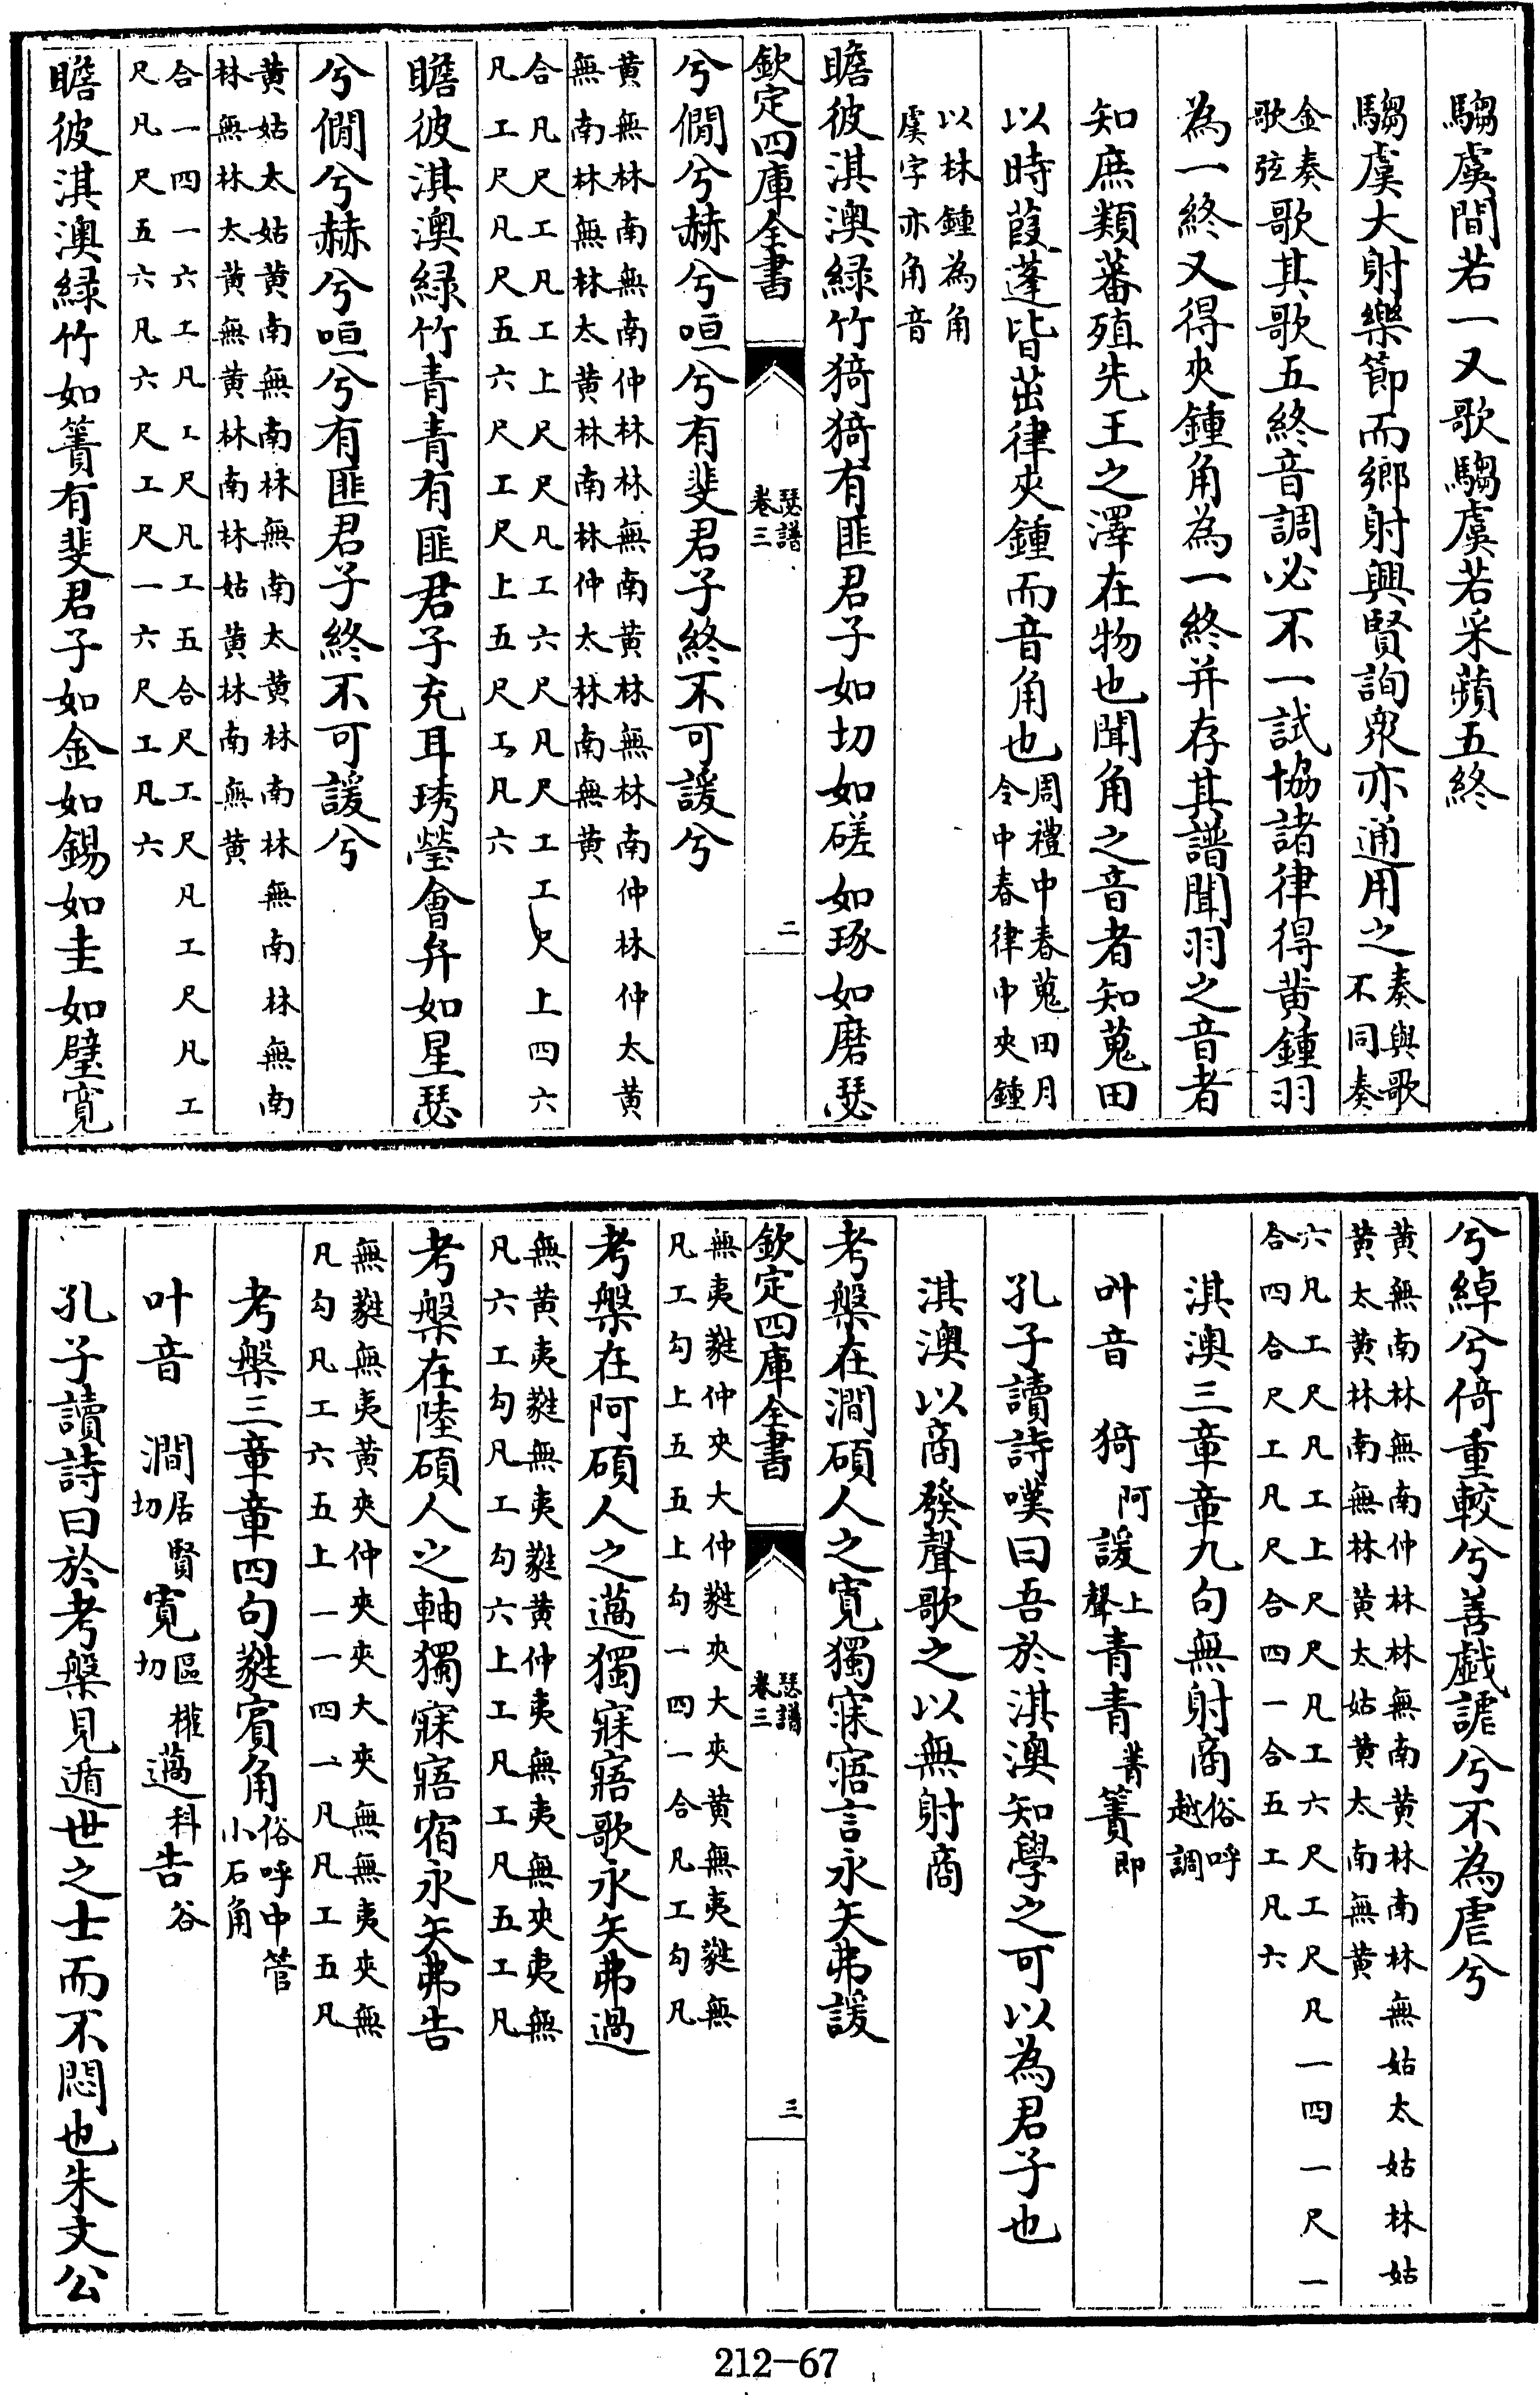 騶虞間若一又歌騶虞若采蘋五終
騶虞大射樂節而鄉射興賢詢衆亦通用之奏與歌不同奏
金奏歌弦歌其歌五終音調必不一試協諸律得黄鍾羽
為一終又得夾鍾角為一終并存其譜聞羽之音者
知庶類蕃殖先王之澤在物也聞角之音者知蒐田
以時葭蓬皆茁律夾鍾而音角也周禮中春蒐田月令中春律中夾鍾
以林鍾為角
虞字亦角音
瞻彼淇澳緑竹猗猗有匪君子如切如磋如琢如磨瑟
欽定四庫全書 瑟譜 卷三 二
兮僩兮赫兮咺兮有斐君子終不可諼兮
黄無林南無南仲林林無南黄林無林南仲林仲太黄
無南林無林太黄林南林仲太林南無黄
合凡尺工凡工上尺尺凡工六尺凡尺工工尺上四六
凡工尺凡尺五六尺工尺上五尺工凡六
瞻彼淇澳緑竹青青有匪君子充耳琇瑩會弁如星瑟
兮僩兮赫兮咺兮有匪君子終不可諼兮
黄姑太姑黄南無南林無南太黄林南林無南林無南
林無林太黄無黄林南林姑黄林南無黄
合一四一六工凡工尺凡工五合尺工尺凡工尺凡工
尺凡尺五六凡六尺工尺一六尺工凡六
瞻彼淇澳緑竹如簀有斐君子如金如錫如圭如璧寛
兮綽兮倚重較兮善戲謔兮不為虐兮
黄無南林無南仲林林無南黄林南林無姑太姑林姑
黄太黄林南無林黄太姑黄太南無黄
六凡工尺凡工上尺尺凡工六尺工尺凡一四一尺一
合四合尺工凡尺合四一合五工凡六
淇澳三章章九句無射商俗呼越調
叶音 猗阿諼上聲青青菁簀即
孔子讀詩嘆曰吾於淇澳知學之可以為君子也
淇澳以商發聲歌之以無射商
考槃在澗碩人之寛獨寐寤言永矢弗諼
欽定四庫全書 瑟譜 卷三 三
無夷蕤仲夾大仲蕤夾大夾黄無夷蕤無
凡工勾上五五上勾一四一合凡工勾凡
考槃在阿碩人之薖獨寐寤歌永矢弗過
無黄夷蕤無夷蕤黄仲夷無夷無夾夷無
凡六工勾凡工勾六上工凡工凡五工凡
考槃在陸碩人之軸獨寐寤宿永矢弗告
無蕤無夷黄夾仲夾夾大夾無無夷夾無
凡勾凡工六五上一一四一凡凡工五凡
考槃三章章四句蕤賓角俗呼中管小石角
叶音 澗居賢切寛區權切薖科告谷
孔子讀詩曰於考槃見遁世之士而不悶也朱文公
212-67